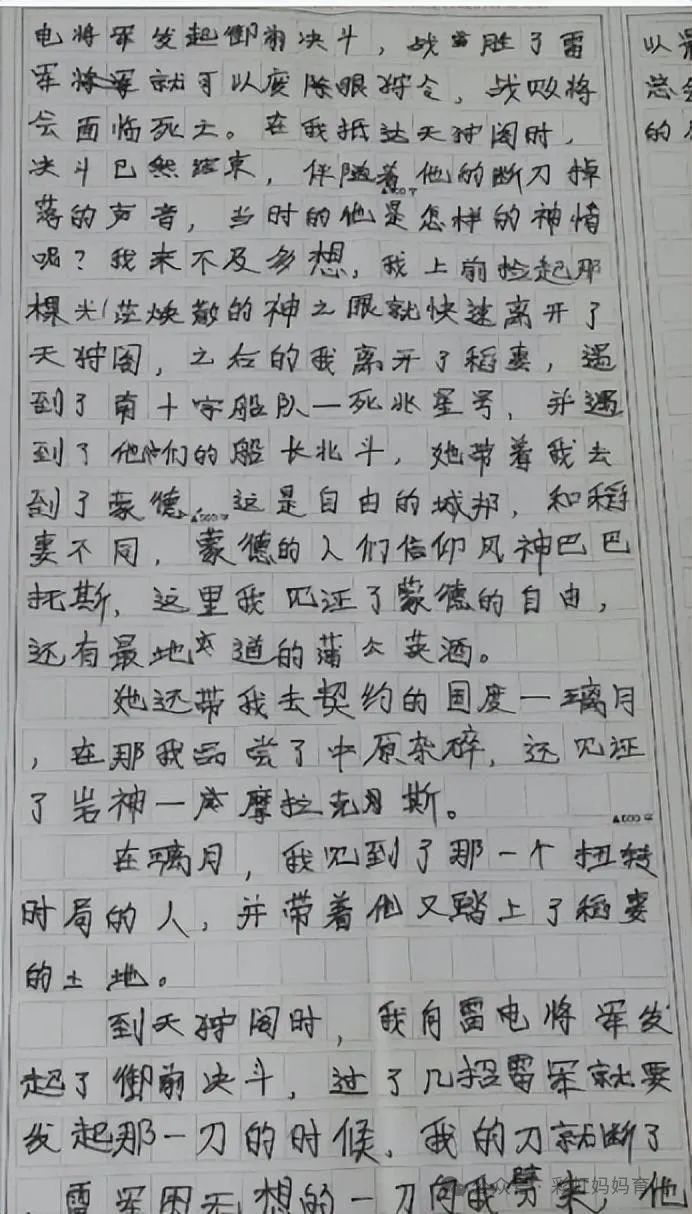 电将军发起御前决斗，战胜了雷
军就可以废除眼狩令，战败将
会面临死亡。在我抵达天狩阁时，
决斗已然结束，伴随着他的断刀掉
落的声音，当时的他是怎样的神情
呢？我来不及多想，我上前捡起那
棵光茫焕散的神之眼就快速离开了
天狩阁，之后的我离开了稻妻，遇
到了南十字船队一死兆星号，并遇
到了他们的船长北斗，她带着我去
到了蒙德，这是自由的城邦，和稻
妻不同，蒙德的人们信仰风神巴巴
托斯，这里我见证了蒙德的自由，
还有最地道的蒲公英酒。
她还带我去契约的国度一璃月
，在那我品尝了中原杂碎，还见证
了岩神一摩拉克斯。
▲600字
在璃月，我见到了那一个扭转
时局的人，并带着他又踏上了稻妻
的土地。
到天狩阁时，我向雷电将军发
起了御前决斗，过了几招雷军就要
发起那一刀的时候，我的刀就断了
，雷军用无想的一刀向我劈来，他
公众号 彩虹妈妈育儿
以
总
的